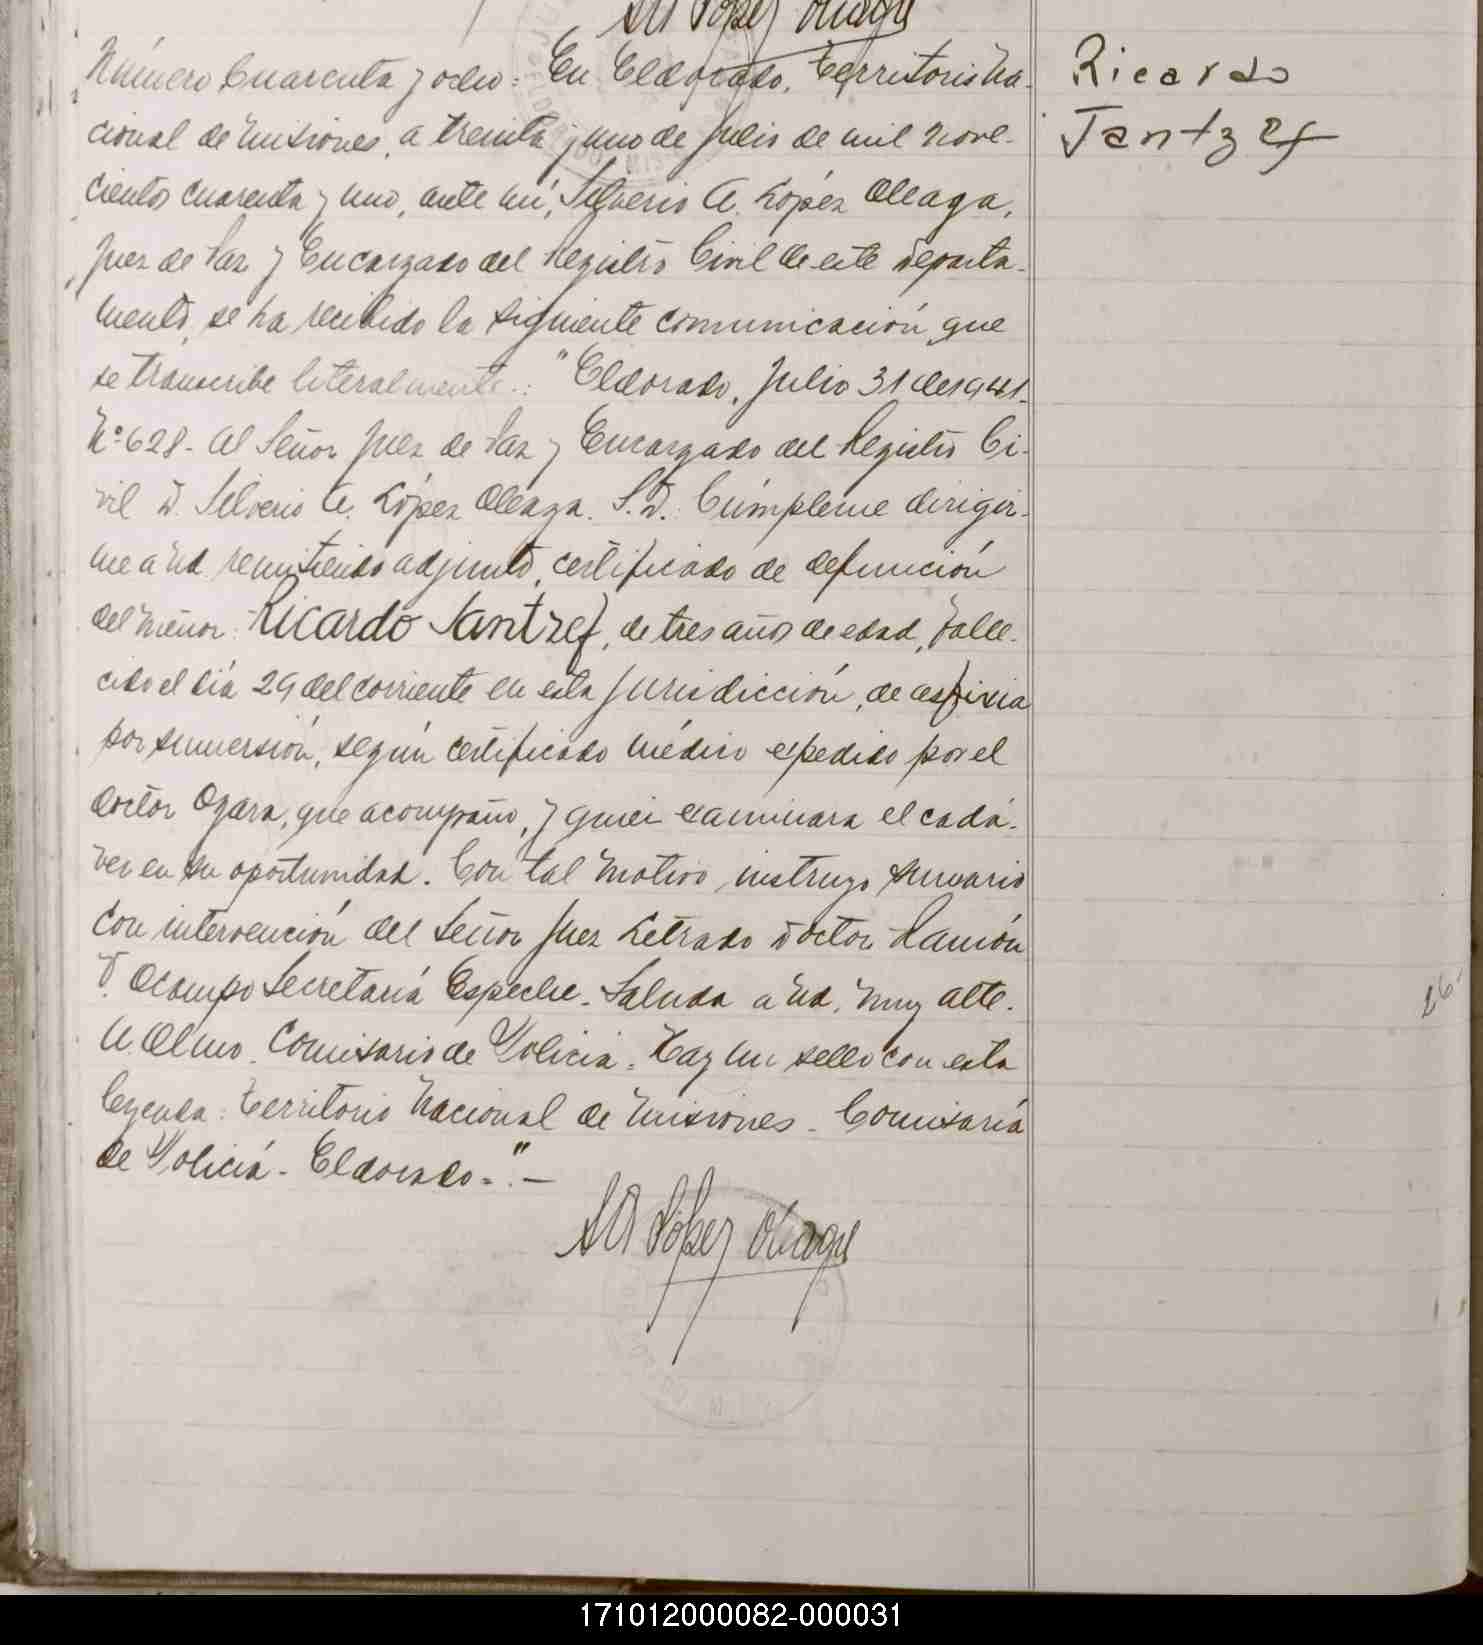 SA López Oleaga
Número Cuarenta y ocho: En Eldorado, Territorio Na-
cional de Misiones, a treinta y uno de Julio de mil nove-
cientos cuarenta y uno, ante mí, Silverio A. López Oleaga,
Juez de Paz y Encargado del Registro Civil de este Departa-
mento, se ha recibido la siguiente comunicación que
se transcribe literalmente: "Eldorado, Julio 31 de 1941.
Nº 628- Al Señor Juez de Paz y Encargado del Registro Ci-
vil D. Silverio A. López Oleaga. S.D.: Cúmpleme dirigir-
me a Ud. remitiendo adjunto, certificado de defunción
del menor: Ricardo Jantzef, de tres años de edad, falle-
cido el día 29 del corriente en esta Jurisdicción, de asfixia
por sumersión, según certificado médico expedido por el
doctor Ogara, que acompaño, y quien examinara el cadá-
ver en su oportunidad. Con tal motivo, instruyo sumario
con intervención del Señor Juez Letrado Doctor Ramón
Ocampo Secretaría Espeche. Saluda a Ud. muy atte.
Olmo. Comisario de Policía. Hay un sello con esta
leyenda: Territorio Nacional de Misiones - Comisaría
de Policía - Eldorado-".-
SA López Oleaga
Ricardo
Jantzef
26.
171012000082-000031